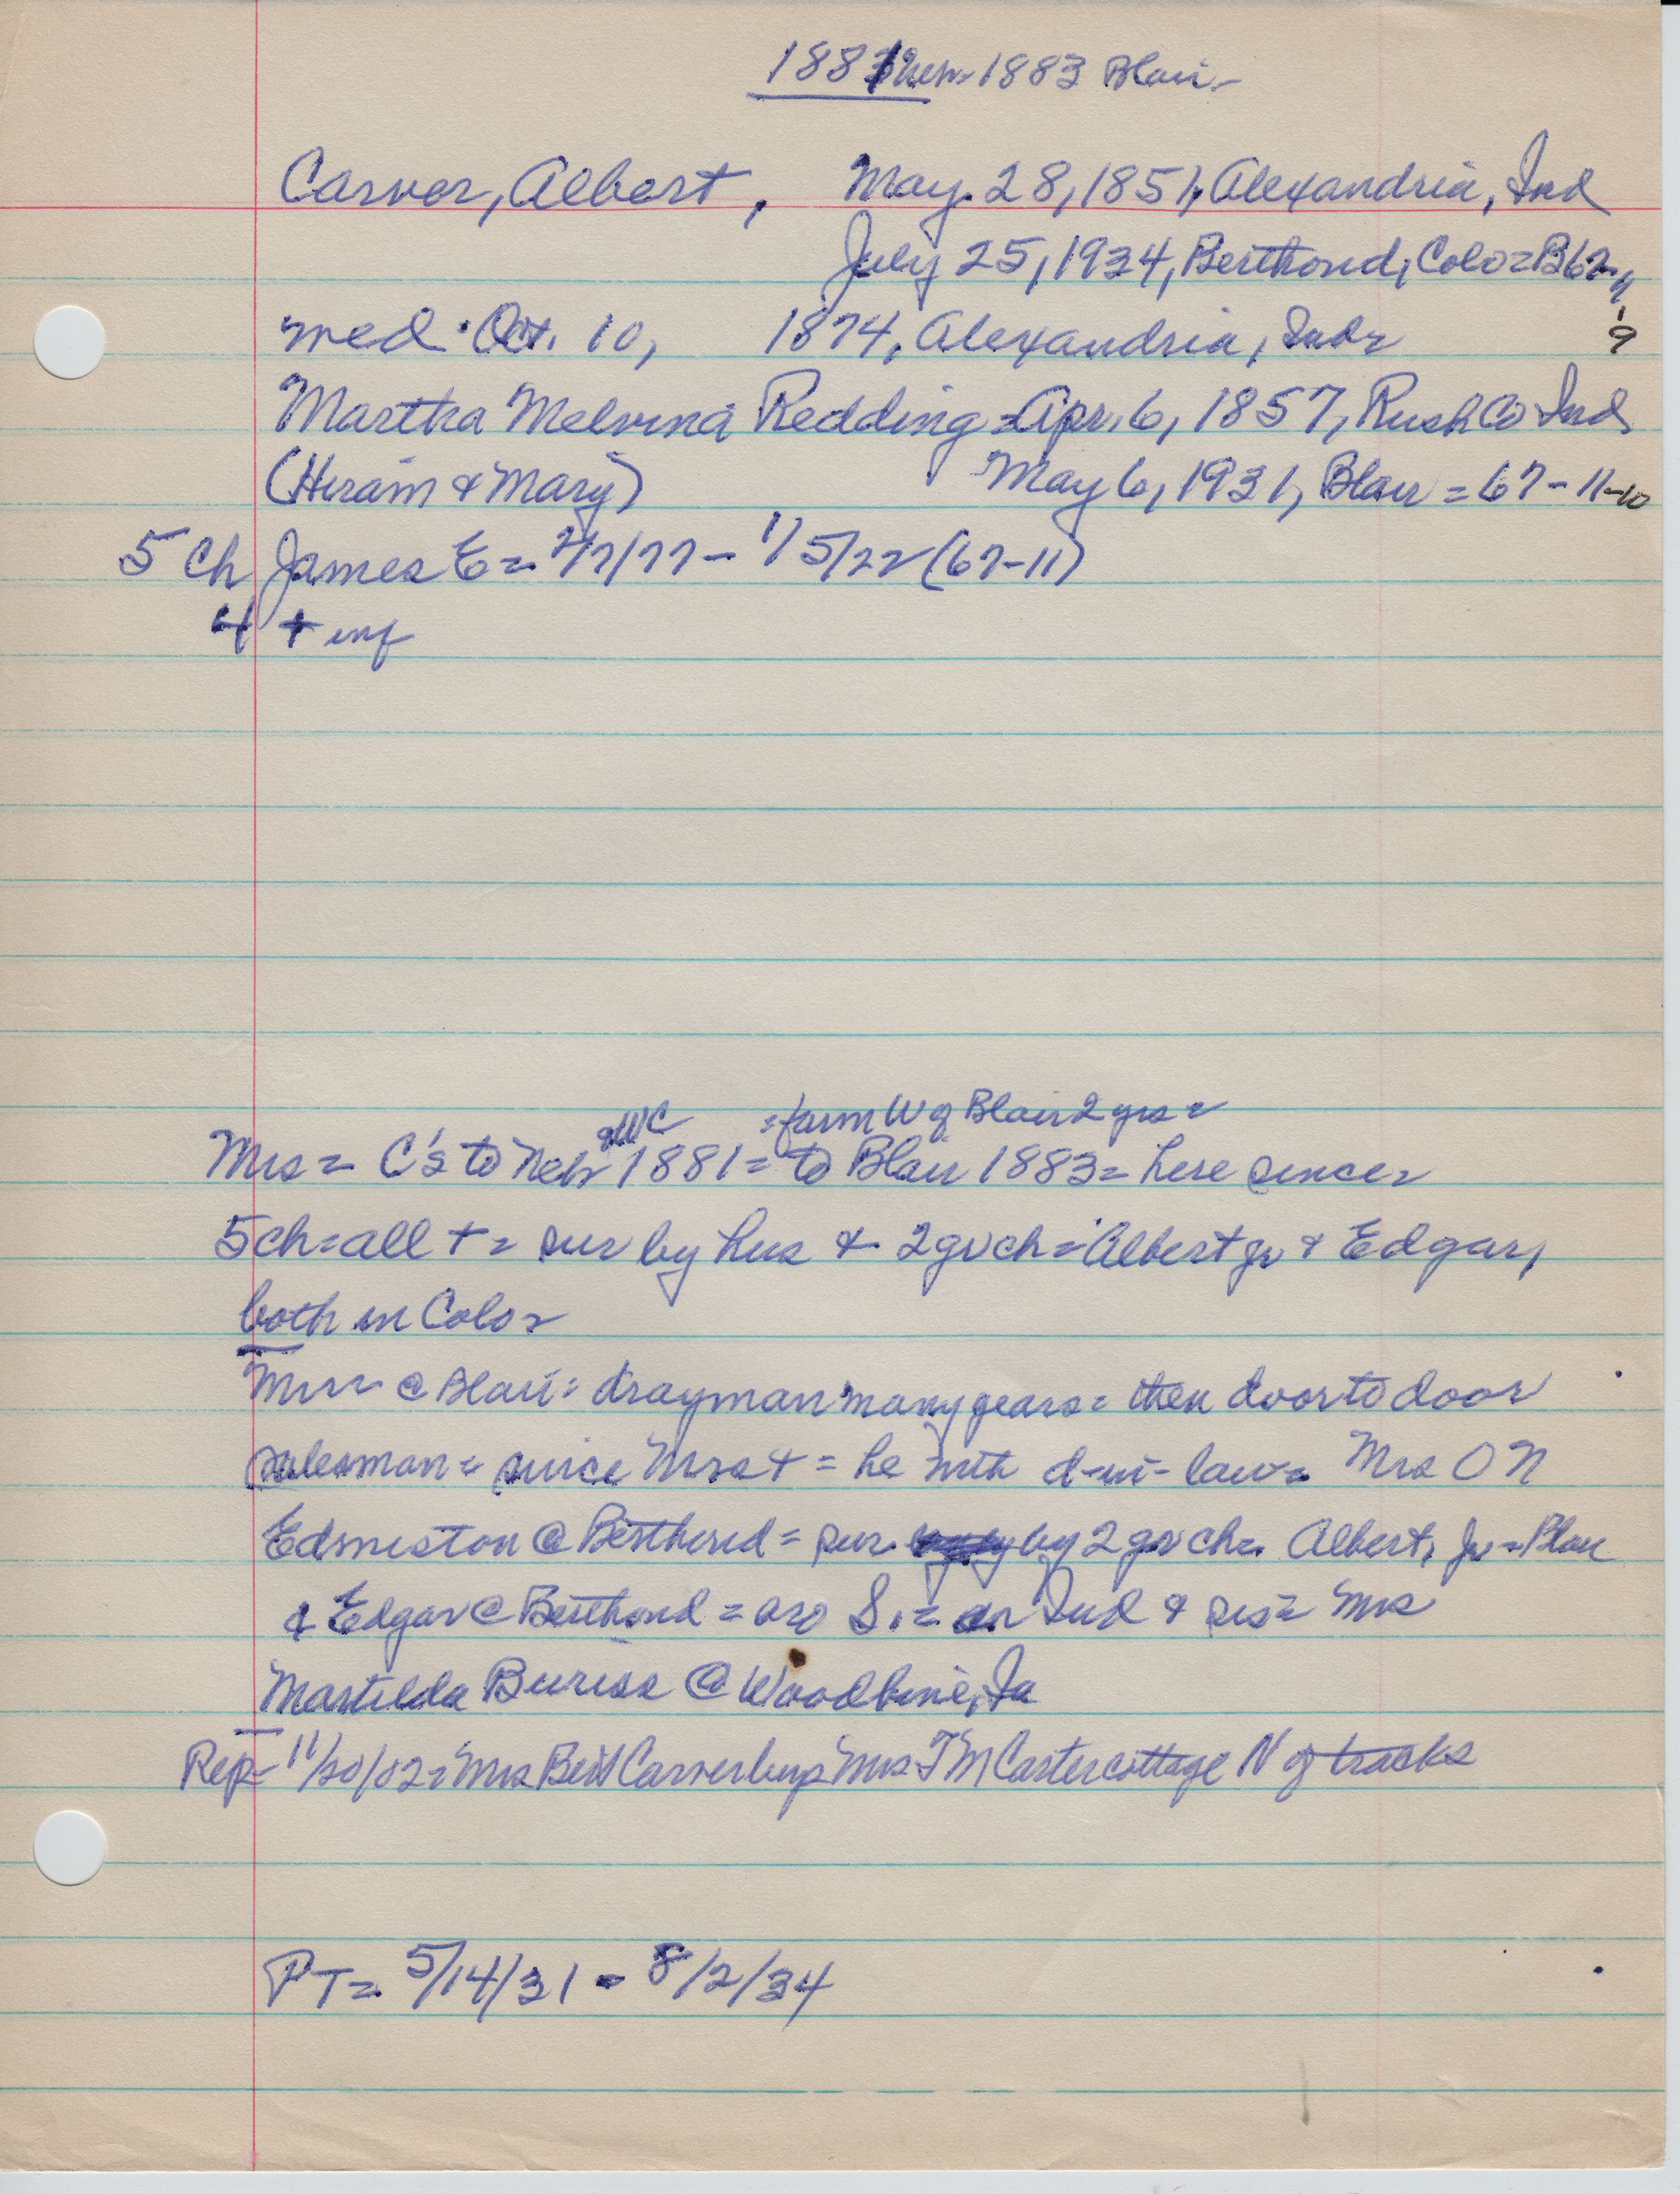 1881 1883 Blair
Carver, Albert, May 28, 1851, Alexandria, Ind
July 25, 1934, Berthoud, Colo = B 62-11-9
med Oct. 10, 1874, Alexandria, Ind =
Martha Melvina Redding = Apr. 6, 1857, Rush Co Ind
(Hiram & Mary) May 6, 1931, Blair = 67-11-10
5 Ch James E = 2/7/77 - 11/5/22 (67-11)
4 + inf
& WC = farm W of Blair 2 yrs =
Mrs = C's to Neb 1881 = to Blair 1883 = here since =
5 ch = all + = sur by hus & 2 gr ch = Albert jr & Edgar,
both in Colo =
Mr = @ Blair = drayman many years = then door to door
salesman = since Mrs + = he with d-in-law = Mrs O N
Edmiston @ Berthoud = sur by 2 gr ch = Albert, Jr = Blair
& Edgar @ Berthoud = Ind & sis = Mrs
Matilda Buriss @ Woodbine, Ia
Rep = 11/20/02 = Mrs Bert Carver buys Mrs T M Carter cottage N of tracks
PT = 5/14/31 - 8/2/34